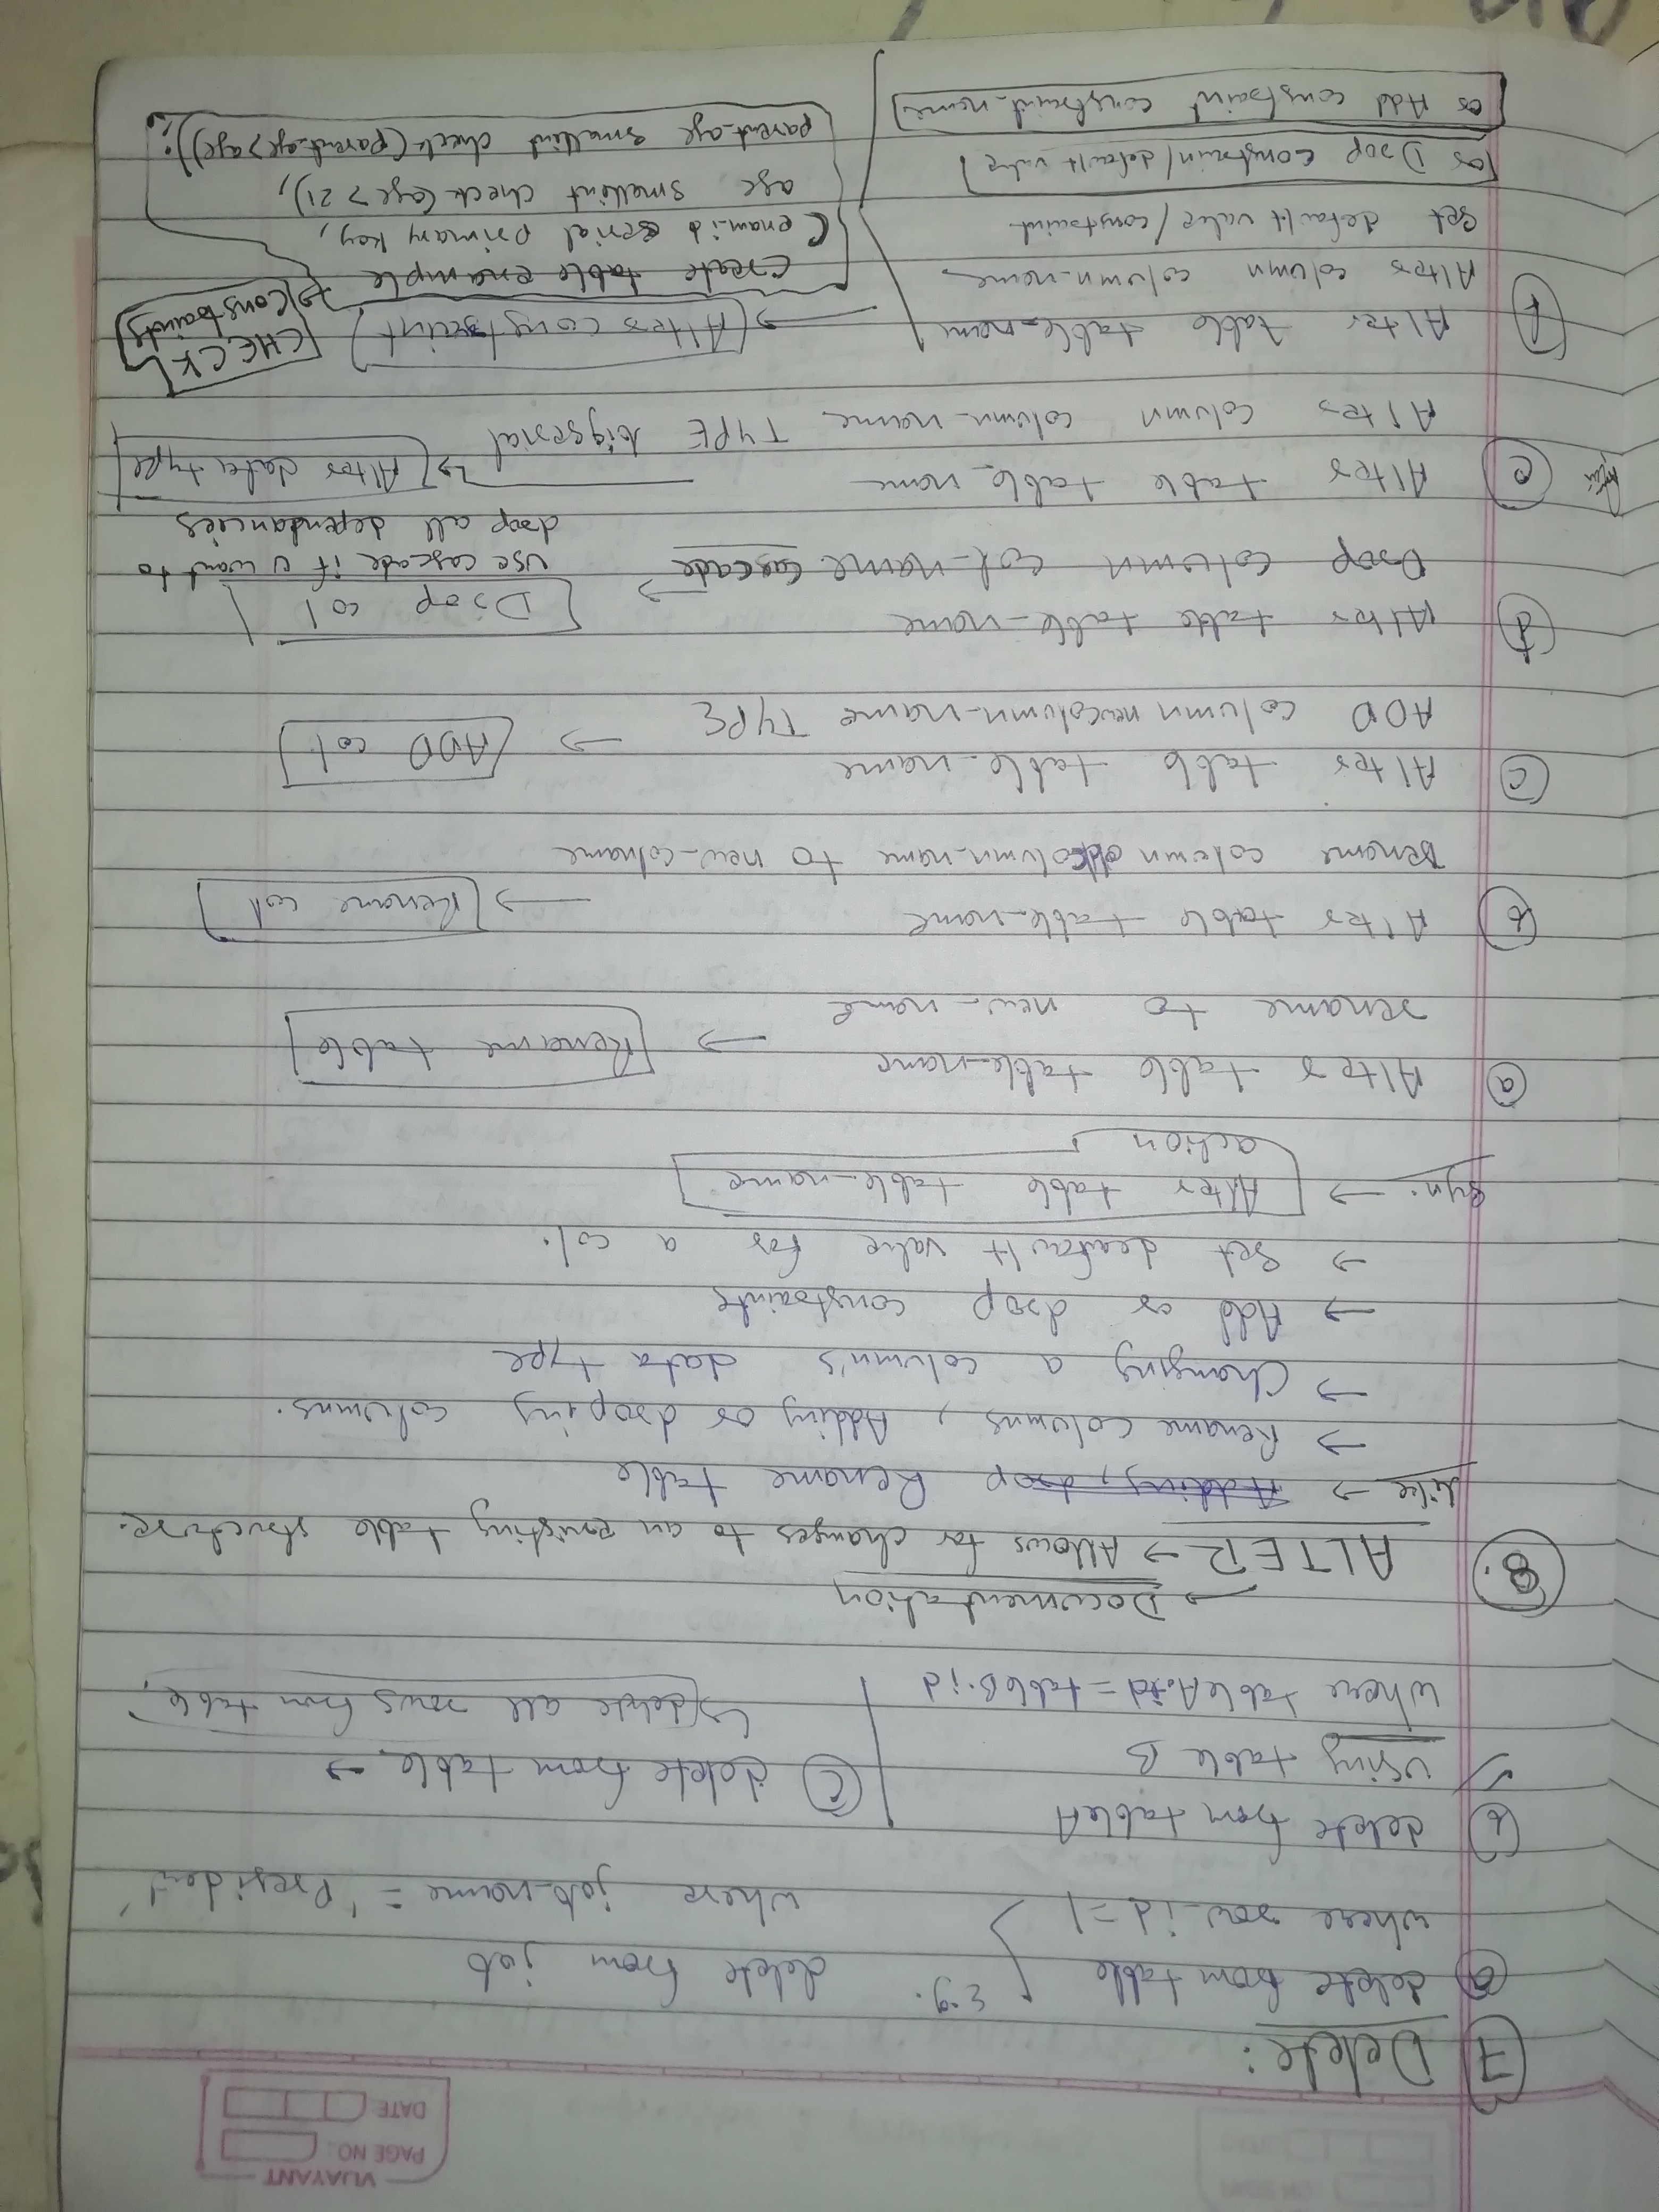 VIJAYANT
PAGE NO.:
DATE:
7 Delete:
a delete from table
where row_id = 1
E.g. delete from job
where job_name = 'President'
b delete from tableA
using table B
where tableA.id = tableB.id
C delete from table →
↳ delete all rows from table.
→ Documentation
8. ALTER → Allows for changes to an existing table structure.
like → Adding, drop Rename table
→ Rename columns, Adding or droping columns.
→ Changing a column's data type
→ Add or drop constraints
→ Set deafault value for a col.
Syn. → Alter table table_name
action
a Alter table table_name
rename to new_name
→ Rename table
b Alter table table_name
→ Rename col
Rename column oldcolumn_name to new_colname
c Alter table table_name
ADD column newcolumn_name TYPE → ADD col
d Alter table table_name
Drop column col_name cascade → Drop col
use cascade if u want to
drop all dependancies
e Alter table table_name
→ Alter data type
Alter column column_name TYPE bigserial
f Alter table table_name → Alter constraint
Alter column column_name
set default value/constraint
or Drop constrain/default value
or Add constraint constraint_name
CHECK
Constraints
create table example
(exam_id serial primary key,
age smallint check (age > 21),
parent_age smallint check (parent_age > age));